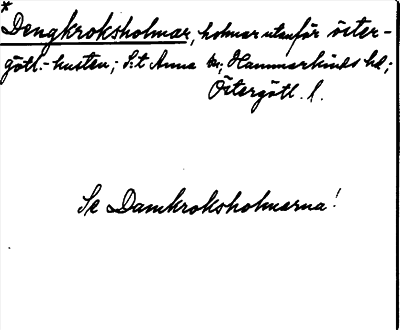 *
Dengkroksholmar, holmar utanför öster-
götl.-kusten; S:t Anna sn; Hammarkinds hd;
Östergötl. l.
Se Damkroksholmarna!